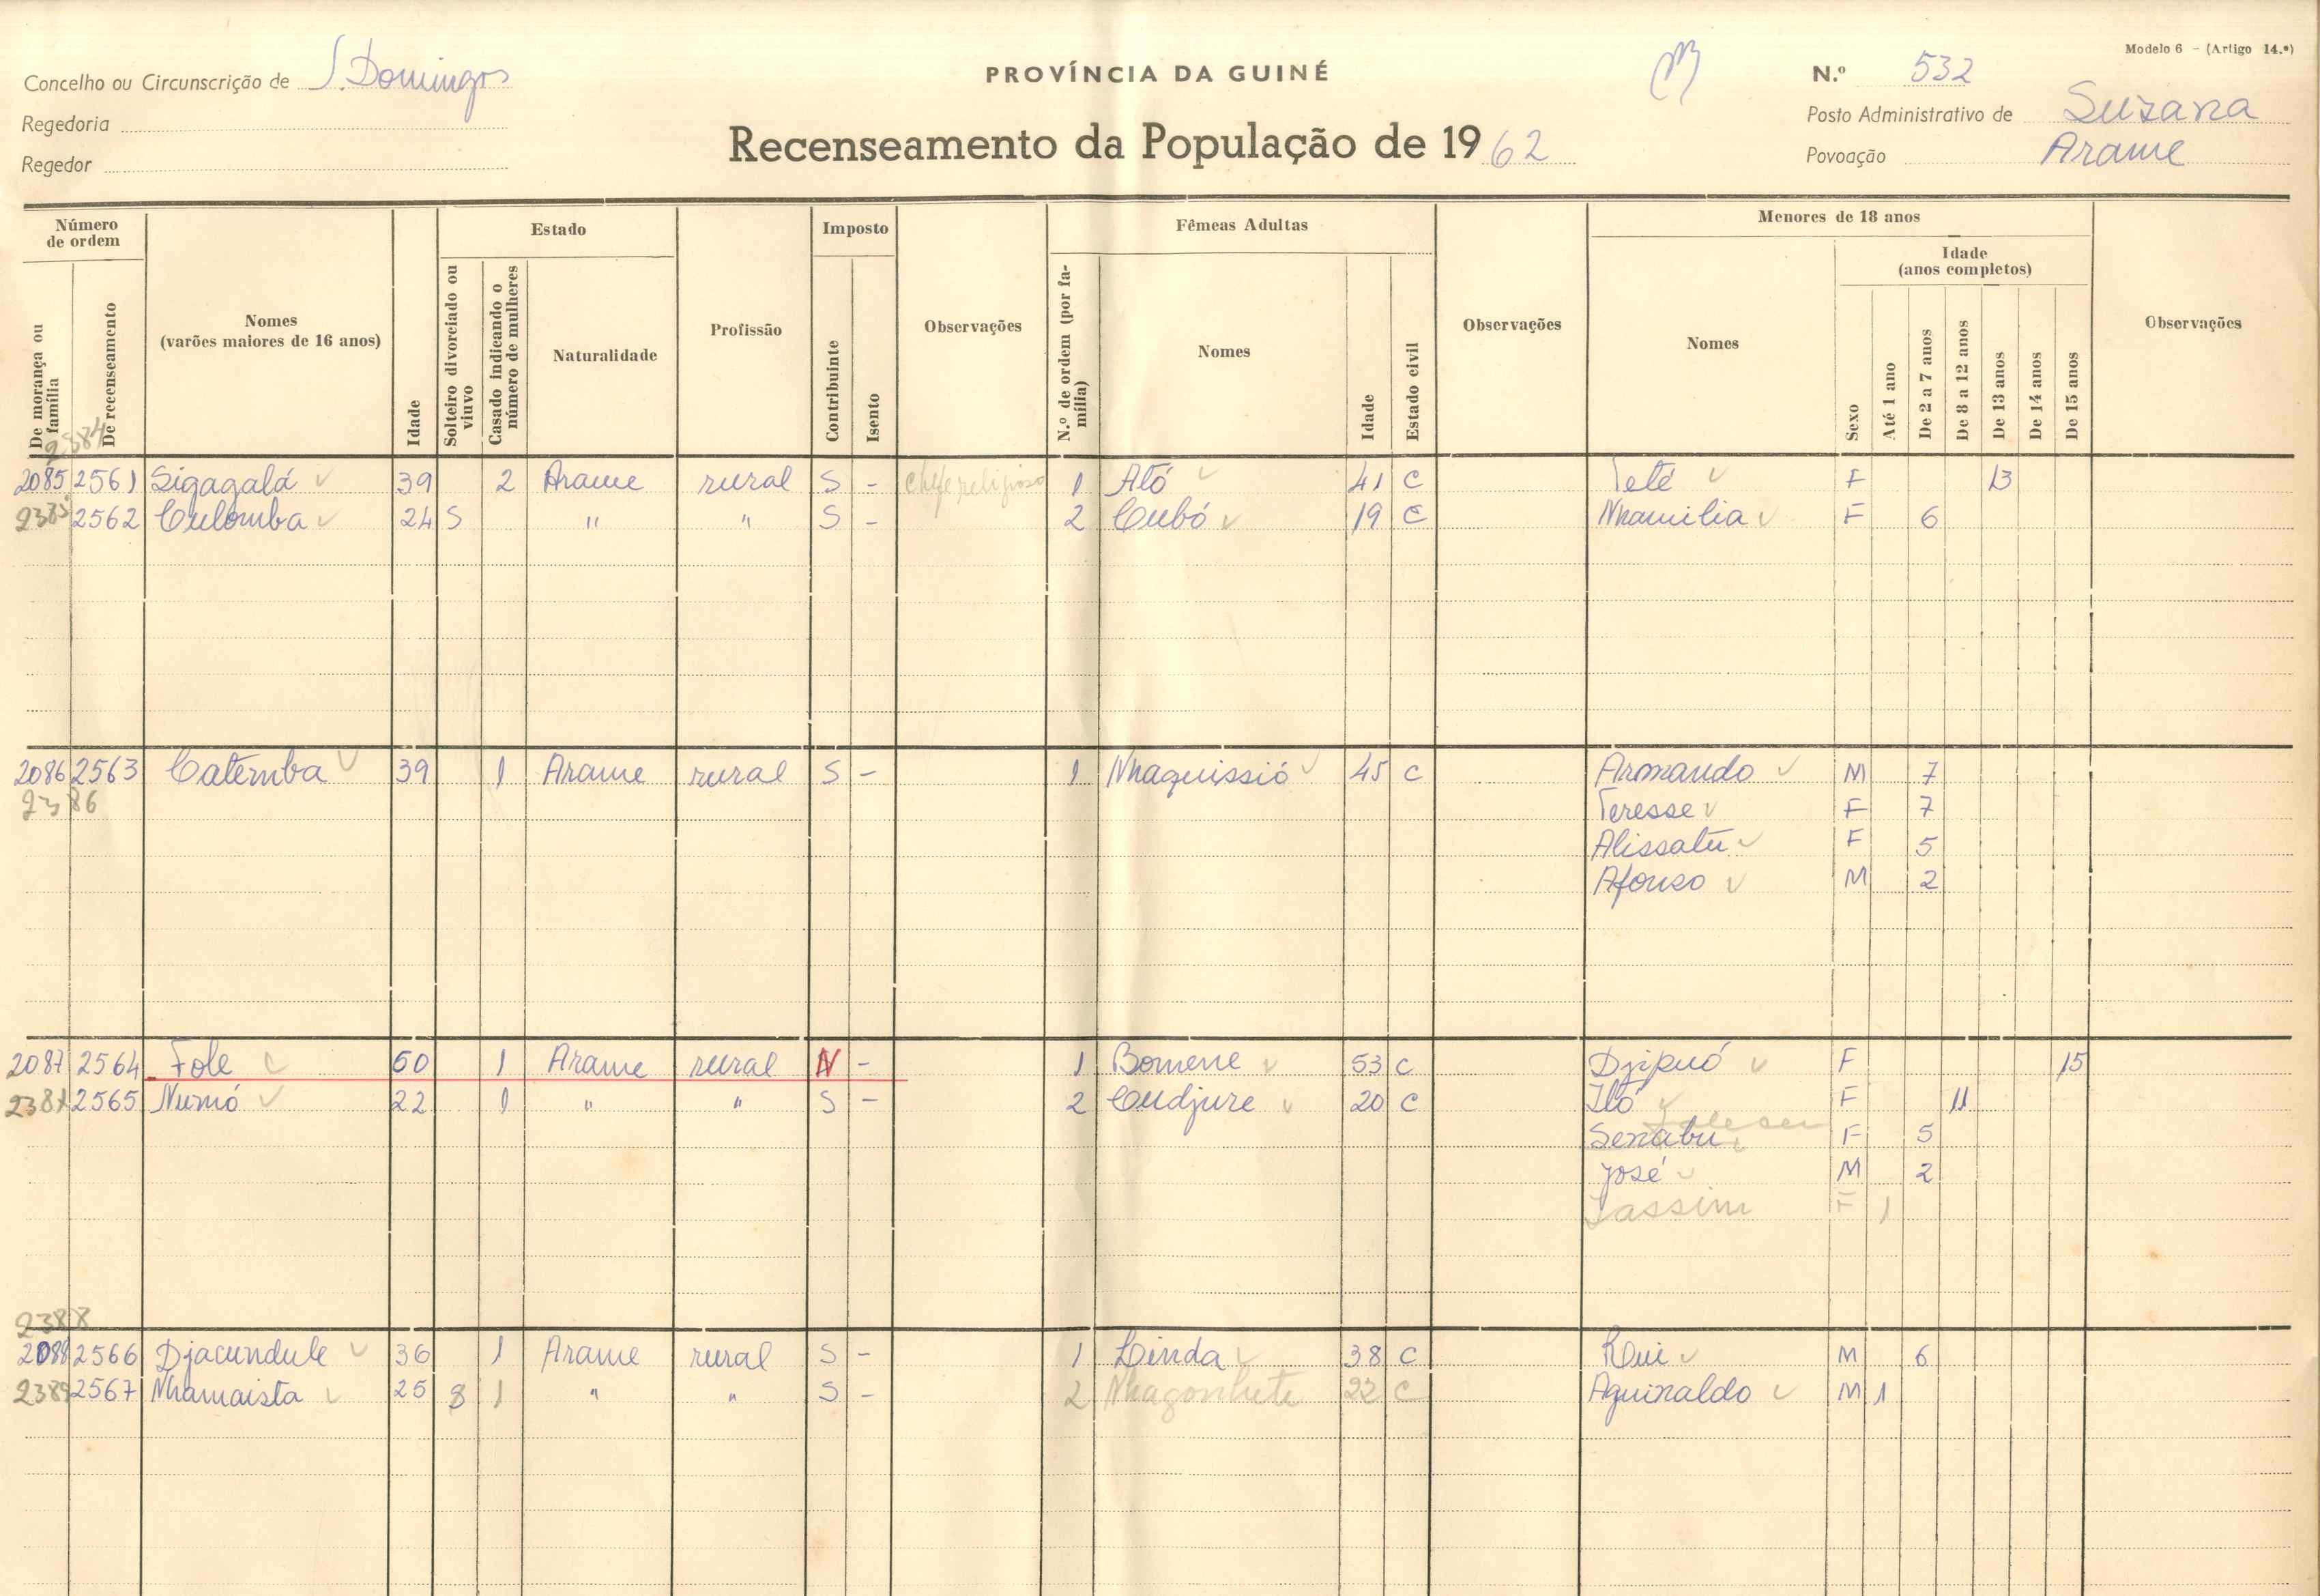 Modelo 6 - (Artigo 14.º)
Concelho ou Circunscrição de S. Domingos
PROVÍNCIA DA GUINÉ
N.º 532
Regedoria
Posto Administrativo de Suzana
Regedor
Recenseamento da População de 1962
Povoação Arame
Número de ordem
Estado
Imposto
Fêmeas Adultas
Menores de 18 anos
Idade (anos completos)
De morança ou família
De recenseamento
Nomes (varões maiores de 16 anos)
Idade
Solteiro divorciado ou viuvo
Casado indicando o número de mulheres
Naturalidade
Profissão
Contribuinte
Isento
Observações
N.º de ordem (por família)
Nomes
Idade
Estado civil
Observações
Nomes
Sexo
Até 1 ano
De 2 a 7 anos
De 8 a 12 anos
De 13 anos
De 14 anos
De 15 anos
Observações
2384
2085 2561 Sigagalá 39 2 Arame rural S - chefe religioso 1 Ató 41 C Teté F 13
2385 2562 Culomba 24 S " " S - 2 Cubó 19 C Nhamilia F 6
2086 2563 Catemba 39 1 Arame rural S - 1 Nhaquissió 45 C Armando M 7
2386 Teresse F 7
Alissatu F 5
Afonso M 2
2087 2564 Fole 60 1 Arame rural N - 1 Bomene 53 C Djipuó F 15
2387 2565 Numó 22 1 " " S - 2 Cudjure 20 C Iló F 11
Senabu F 5
José M 2
Jassim F 1
2388
2088 2566 Djacundule 36 1 Arame rural S - 1 Linda 38 C Rui M 6
2389 2567 Nhamaista 25 S 1 " " S - 2 Nhagonhete 22 C Aguinaldo M 1